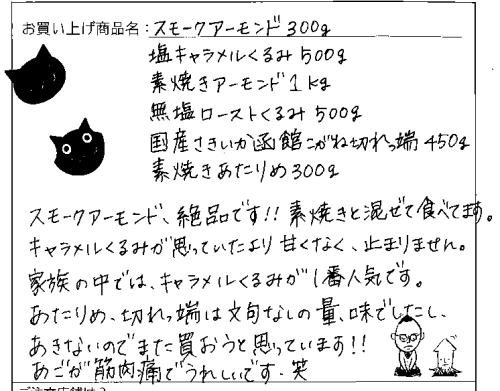 お買い上げ商品名：スモークアーモンド 300g
塩キャラメルくるみ 500g
素焼きアーモンド 1kg
無塩ローストくるみ 500g
国産さきいか函館こがね切れっ端 450g
素焼きあたりめ 300g
スモークアーモンド、絶品です!! 素焼きと混ぜて食べてます。
キャラメルくるみが思っていたより甘くなく、止まりません。
家族の中では、キャラメルくるみが1番人気です。
あたりめ、切れっ端は文句なしの量、味でしたし、
あきないのでまた買おうと思っています!!
あごが筋肉痛でうれしいです。笑